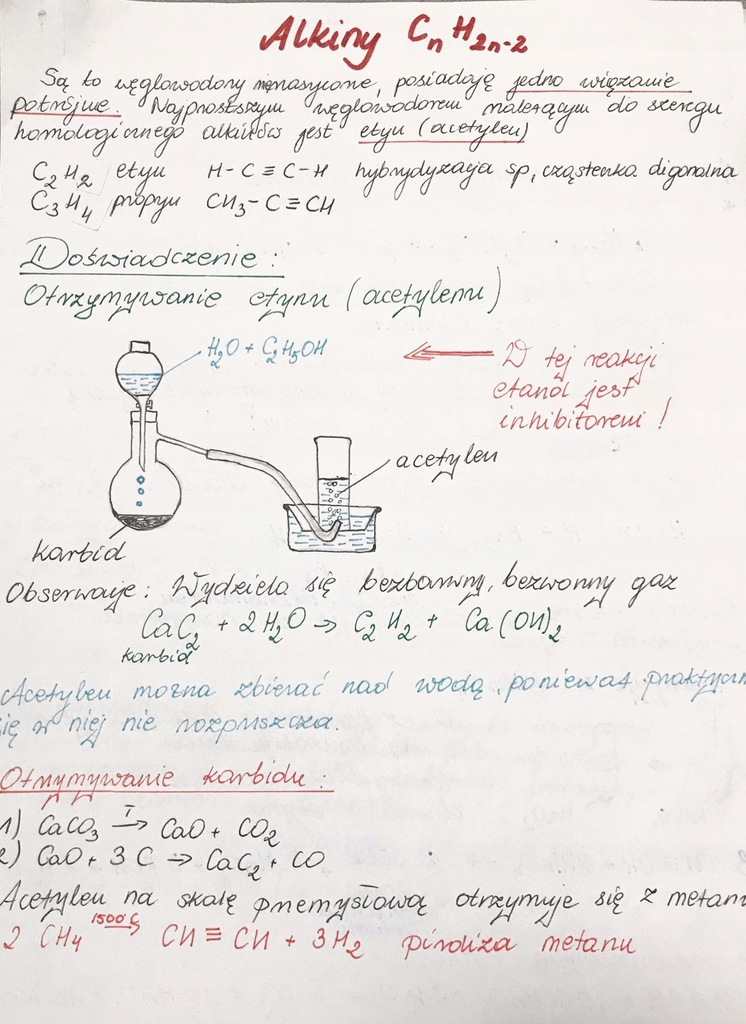 Alkiny CnH2n-2
Są to węglowodory nienasycone, posiadają jedno wiązanie
potrójne. Najprostszym węglowodorem należącym do szeregu
homologicznego alkinów jest etyn (acetylen)
C2H2 etyn H-C≡C-H hybrydyzacja sp, cząsteczka digonalna
C3H4 propyn CH3-C≡CH
Doświadczenie:
Otrzymywanie etynu (acetylenu)
H2O + C2H5OH
W tej reakcji
etanol jest
inhibitorem!
acetylen
karbid
Obserwacje: Wydziela się bezbarwny, bezwonny gaz
CaC2 + 2H2O → C2H2 + Ca(OH)2
karbid
Acetylen można zbierać nad wodą, ponieważ praktyczn
się w niej nie rozpuszcza.
Otrzymywanie karbidu:
1) CaCO3 T→ CaO + CO2
2) CaO + 3C → CaC2 + CO
Acetylen na skalę przemysłową otrzymuje się z metan
2 CH4 1500°C→ CH≡CH + 3H2 piroliza metanu